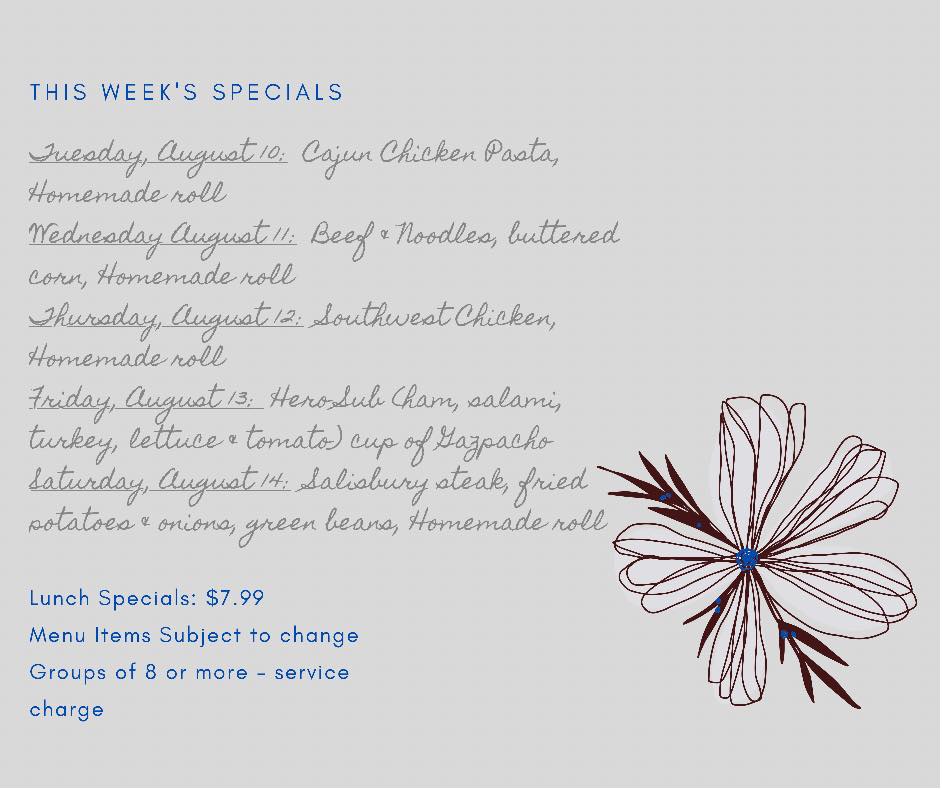 THIS WEEK'S SPECIALS
Tuesday, August 10: Cajun Chicken Pasta,
Homemade roll
Wednesday August 11: Beef & Noodles, buttered
corn, Homemade roll
Thursday, August 12: Southwest Chicken,
Homemade roll
Friday, August 13: Hero Sub (ham, salami,
turkey, lettuce & tomato) cup of Gazpacho
Saturday, August 14: Salisbury steak, fried
potatoes & onions, green beans, Homemade roll
Lunch Specials: $7.99
Menu Items Subject to change
Groups of 8 or more - service
charge